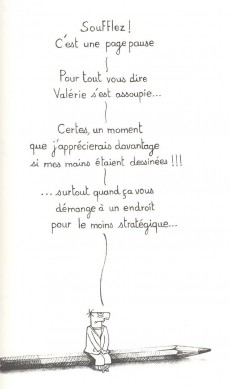 Soufflez !
C'est une page pause
Pour tout vous dire
Valérie s'est assoupie...
Certes, un moment
que j'apprécierais davantage
si mes mains étaient dessinées !!!
...surtout quand ça vous
démange à un endroit
pour le moins stratégique...